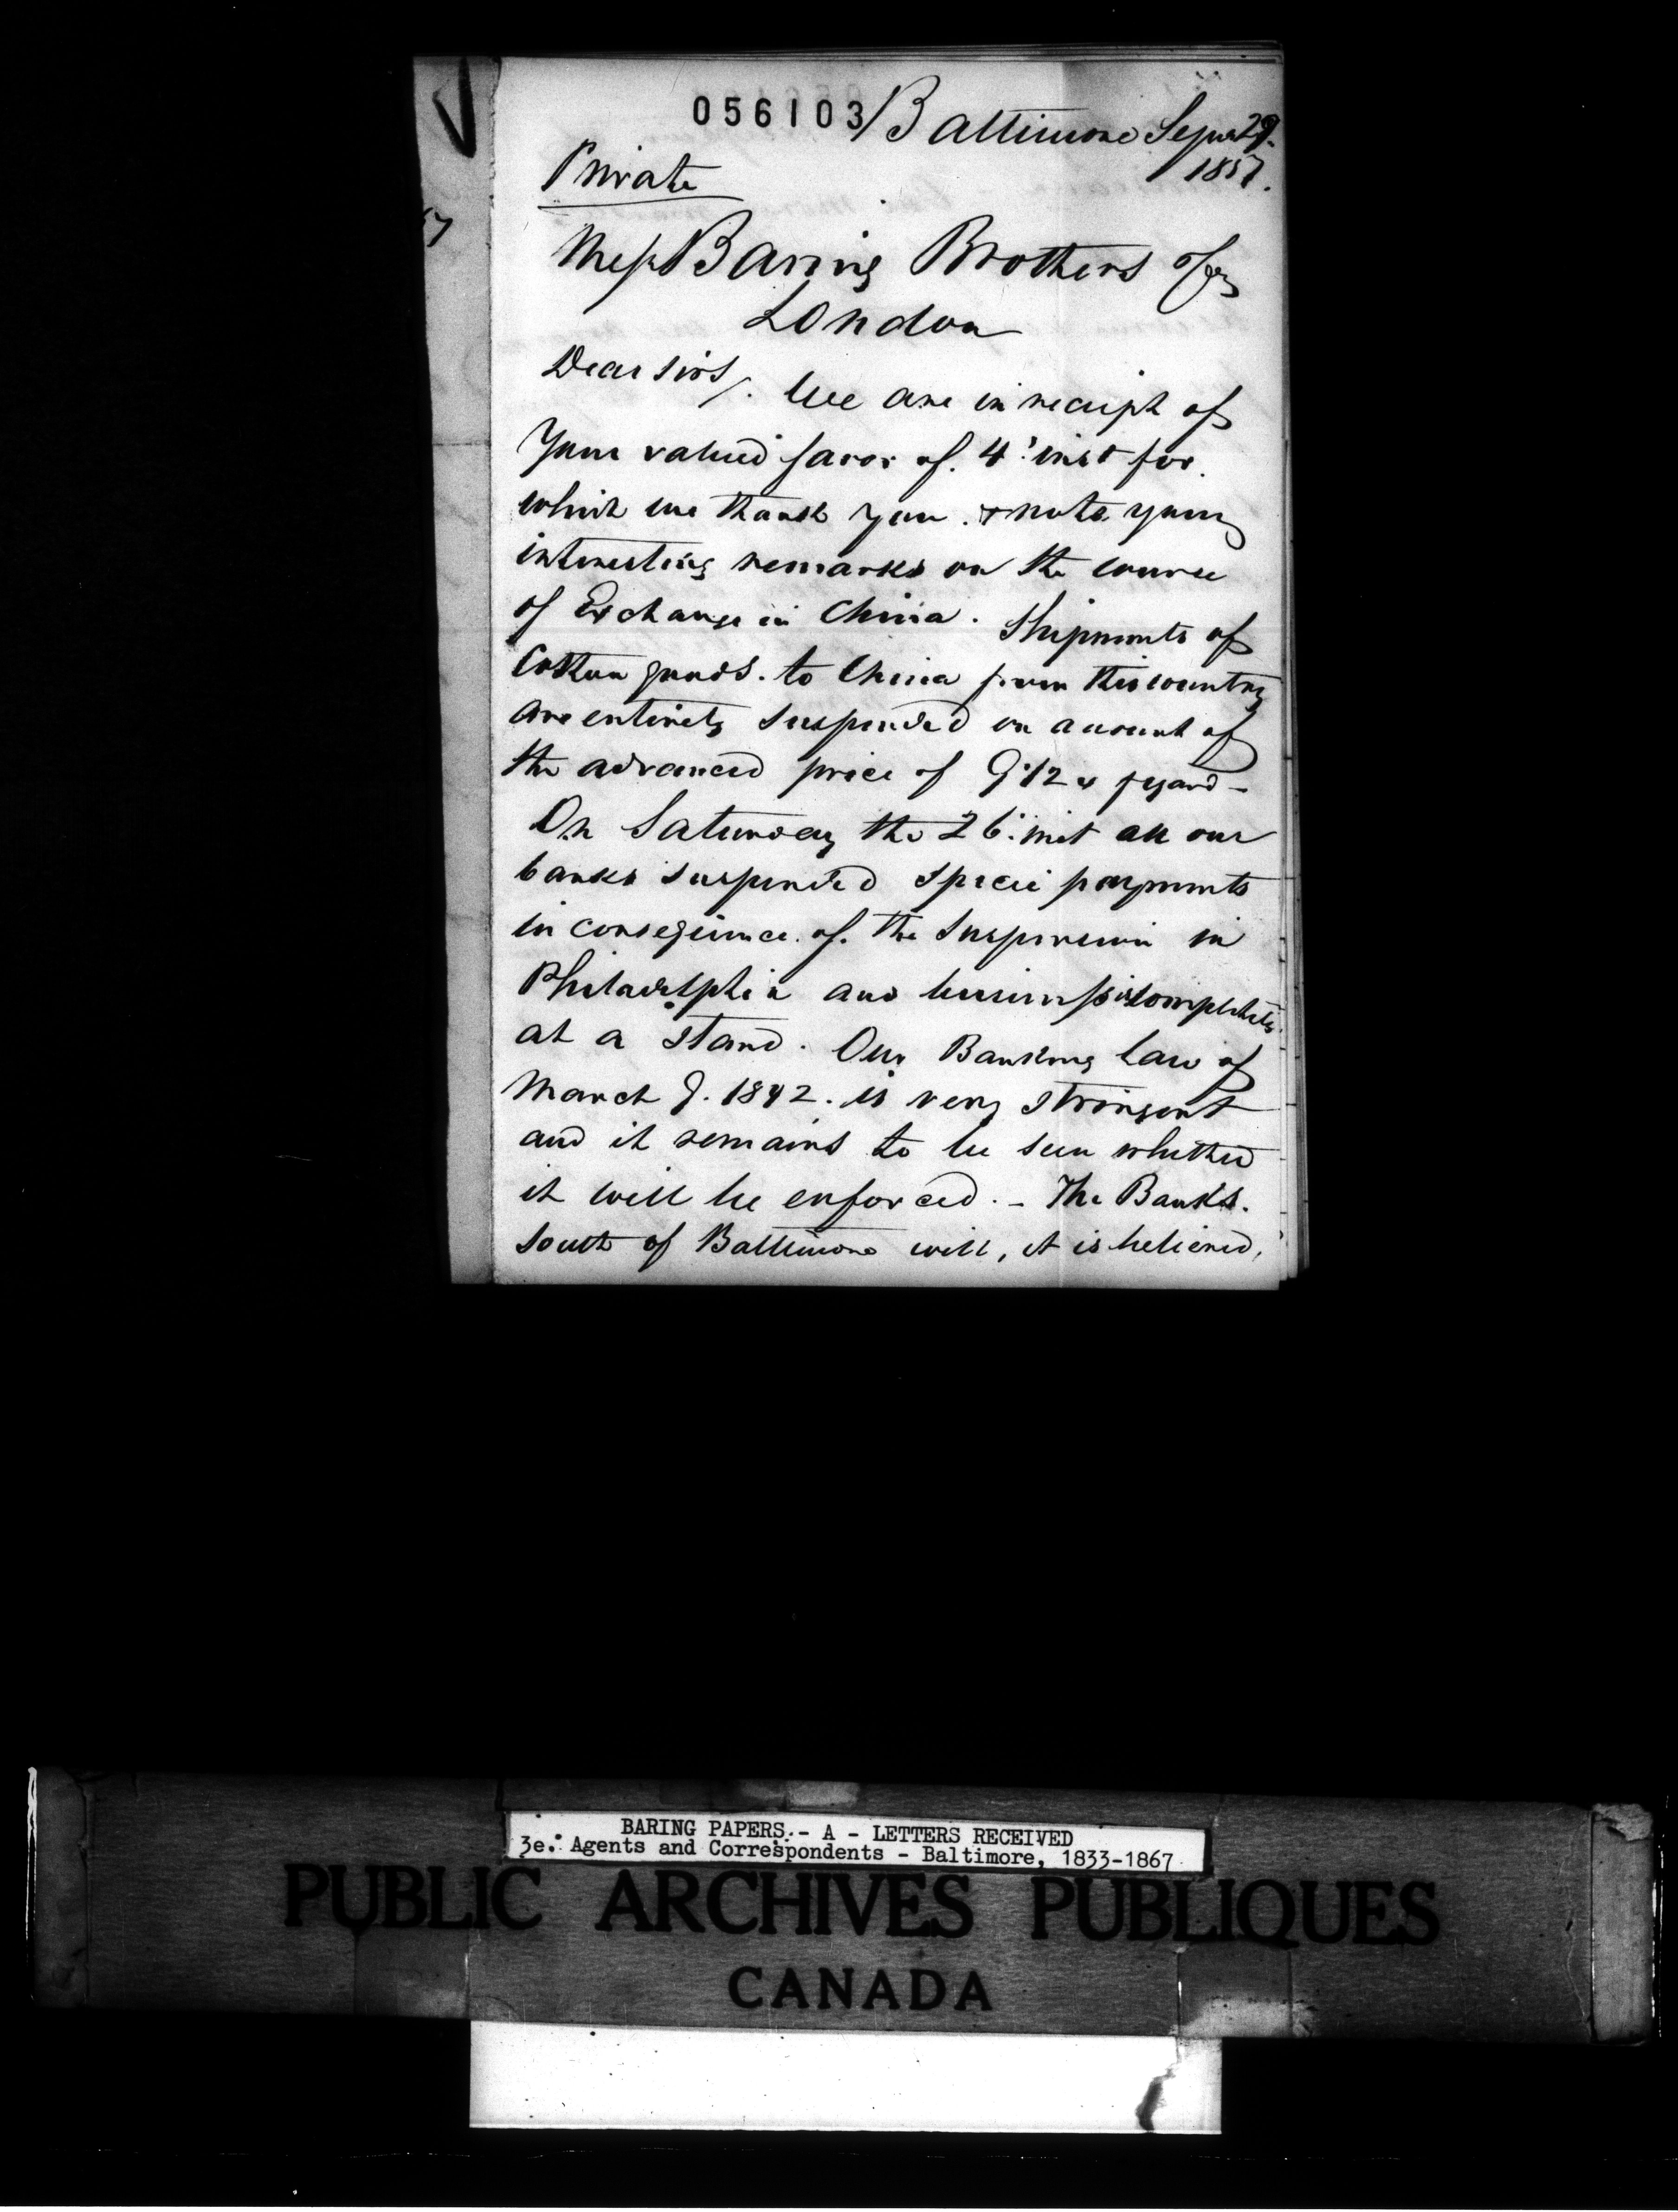 056103
Baltimore Sepr 29.
1857.
Private
Messrs Baring Brothers & Co
London
Dear Sirs/. We are in receipt of
Your valued favor of. 4' inst for.
which we thank you. & note your
interesting remarks on the course
of Exchange in China. Shipments of
Cotton goods. to China from this country
are entirely suspended on account of
the advanced price of pr yard –
On Saturday the 26' inst all our
banks suspended specie payments
in consequence. of. the suspension in
Philadelphia and business is completely
at a stand. Our Banking law of
March 1842. is very stringent
and it remains to be seen whether
it will be enforced. – The Banks.
South of Baltimore will, it is believed,
BARING PAPERS. - A - LETTERS RECEIVED
3e. Agents and Correspondents - Baltimore, 1833-1867
PUBLIC ARCHIVES PUBLIQUES
CANADA